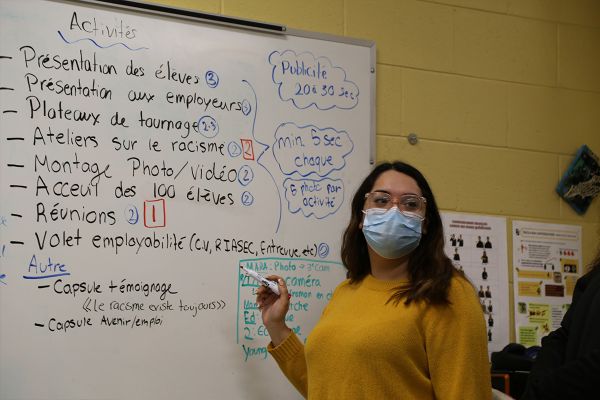 Activités
- Présentation des élèves 3
- Présentation aux employeurs
- Plateaux de tournage 2-3
- Ateliers sur le racisme 2 2
- Montage Photo/vidéo 2
- Acceuil des 100 élèves 2
- Réunions 2 1
- Volet employabilité (C.V, RIASEC, Entrevue, etc) 2
Autre
- Capsule témoignage
<<le racisme existe toujours>>
- Capsule Avenir/emploi
Publicité
20 à 30 sec
min 5 sec
chaque
6 photo par
activité
MARA - Photo → 3e Cam
caméra